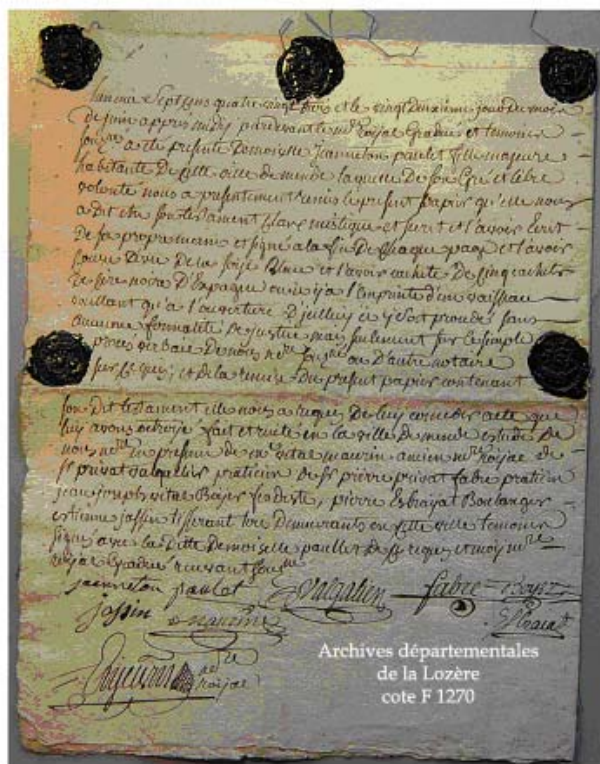 Lan mil Sept Cens quatre vingt trois et le vingt Deuxieme jour Du mois
De juin appres midy pardevant le no.re Royal Gradué et temoins
soug.nes a ete presente Demoiselle Jeanneton paulet fille majeure
habitante De cette ville de mende laquelle De son Gré et libre
volonté nous a presentement remis le present papier qu'elle nous
a Dit etre son testament Clave mistique et secret et l'avoir Ecrit
De sa propre main et signé a la fin De Chaque page et l'avoir
De la soije Blue et l'avoir cacheté De cinq cachets
De sire noire D'Espagne ou il ij a l'Emprunte D'un vaisseau
voullant qu'a l'ouverture D'jcelluij il ij soit procedé sans
aucune formalité De justice mais seulement sur le simple
proces verbal De nous no.re soug.né ou D'autre notaire
sur ce requis; et De la remise Du present papier contenant
son Dit testament elle nous a requis De luy conceder acte que
luy avons octroijé fait et recité en la ville De mende etude De
nous no.re en presence de m.e vital maurin ancien no.re roijal de
s.r privat valgalier praticien de s.r pierre privat fabre praticien
jean joseph vital Boijer feodiste, pierre Esbraijat Boulanger
estienne jassin tisserant tous Demeurants en cette ville temoins
signés avec la Ditte Demoiselle paullet De ce requis et moij no.re
roijal Gradué recevant soug.né
jeanneton paulet Valgalier fabre Boyer
jassin maurin Esbraiat
no.re
roijal
Archives départementales
de la Lozère
cote F 1270